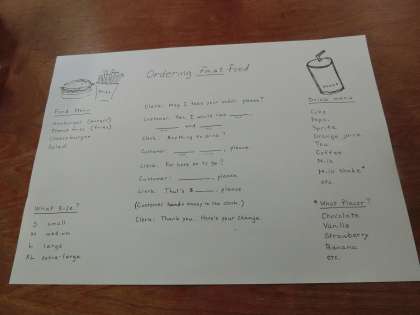 Ordering fast food
Food Menu
Hamburger (burger)
French fries (fries)
Cheeseburger
Salad
What Size?
S small
M medium
L large
XL extra-large
Clerk: May I take your order, please?
Customer: Yes, I would like ____,
____ and ____.
Clerk: Anything to drink?
Customer: ____ ____, please.
Clerk: For here or to go?
Customer: ____, please
Clerk: That's $____, please
(Customer hands money to the clerk.)
Clerk: Thank you. Here's your change.
Drink menu
Coke
Pepsi
Sprite
Orange juice
Tea
Coffee
Milk
Milk shake*
etc.
* What flavor?
Chocolate
Vanilla
Strawberry
Banana
etc.